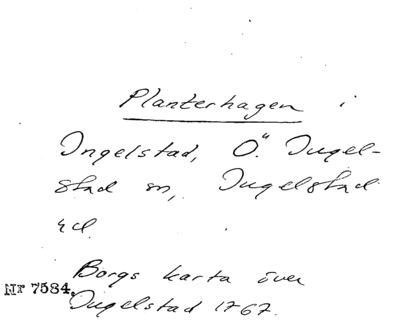 Planterhagen i
Ingelstad, Ö. Ingel-
stad sn, Ingelstad
hd.
Borgs karta över
Nr 7584. Ingelstad 1767.